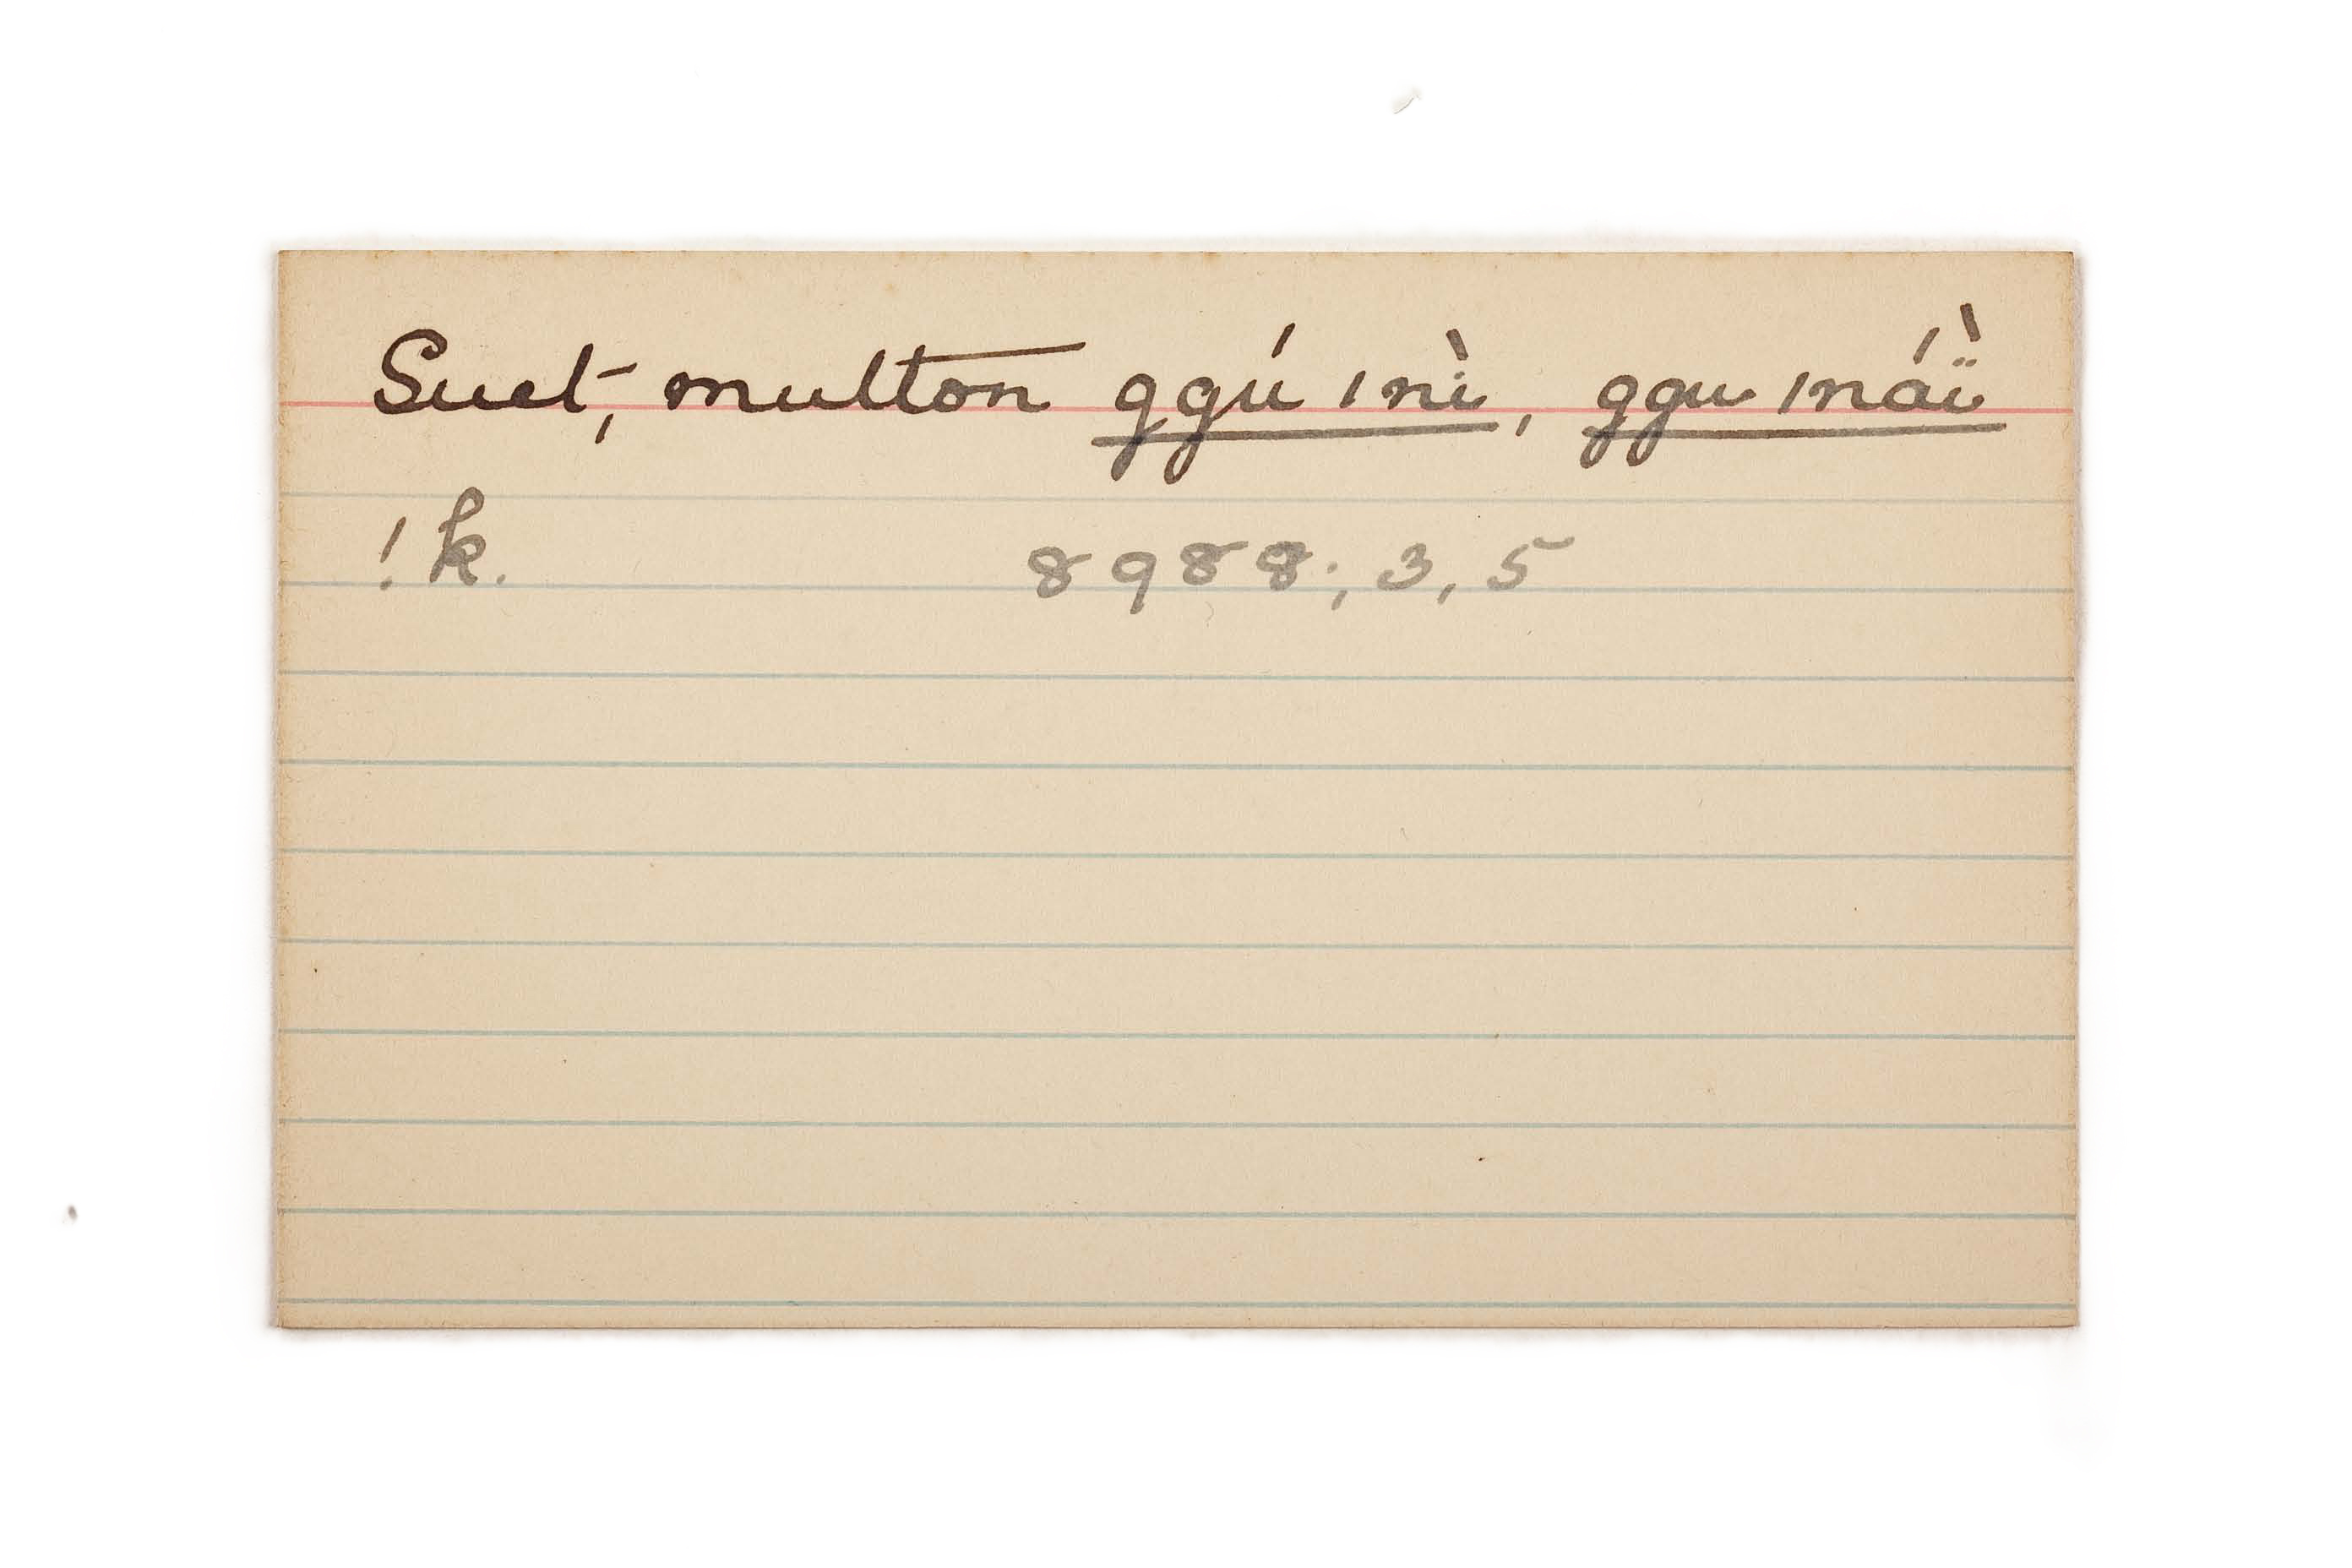 Suet, mutton ggú ǀnì, ggu ǀnáï̀
!k. 8988; 3, 5